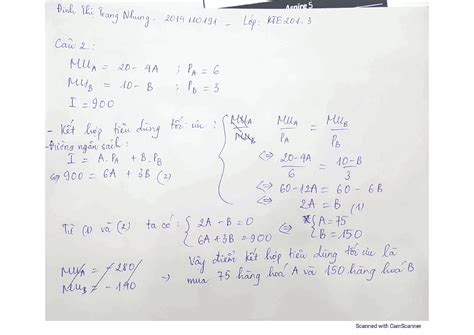 Aspire 5
Đinh Thị Trang Nhung - 2014110191 - Lớp: KTE201.3
Câu 2:
MUA = 20 - 4A ; PA = 6
MUB = 10 - B ; PB = 3
I = 900
- Kết hợp tiêu dùng tối ưu: MUA/MUB MUA/PA = MUB/PB
- Đường ngân sách:
I = A.PA + B.PB
⇔ (20-4A)/6 = (10-B)/3
⇔ 900 = 6A + 3B (2)
⇔ 60-12A = 60-6B
⇔ 2A = B (1)
Từ (1) và (2) ta có: { 2A - B = 0 { A = 75
6A + 3B = 900 B = 150
MUA = -280
MUB = -140
→ Vậy điểm kết hợp tiêu dùng tối ưu là
mua 75 hàng hoá A và 150 hàng hoá B
Scanned with CamScanner